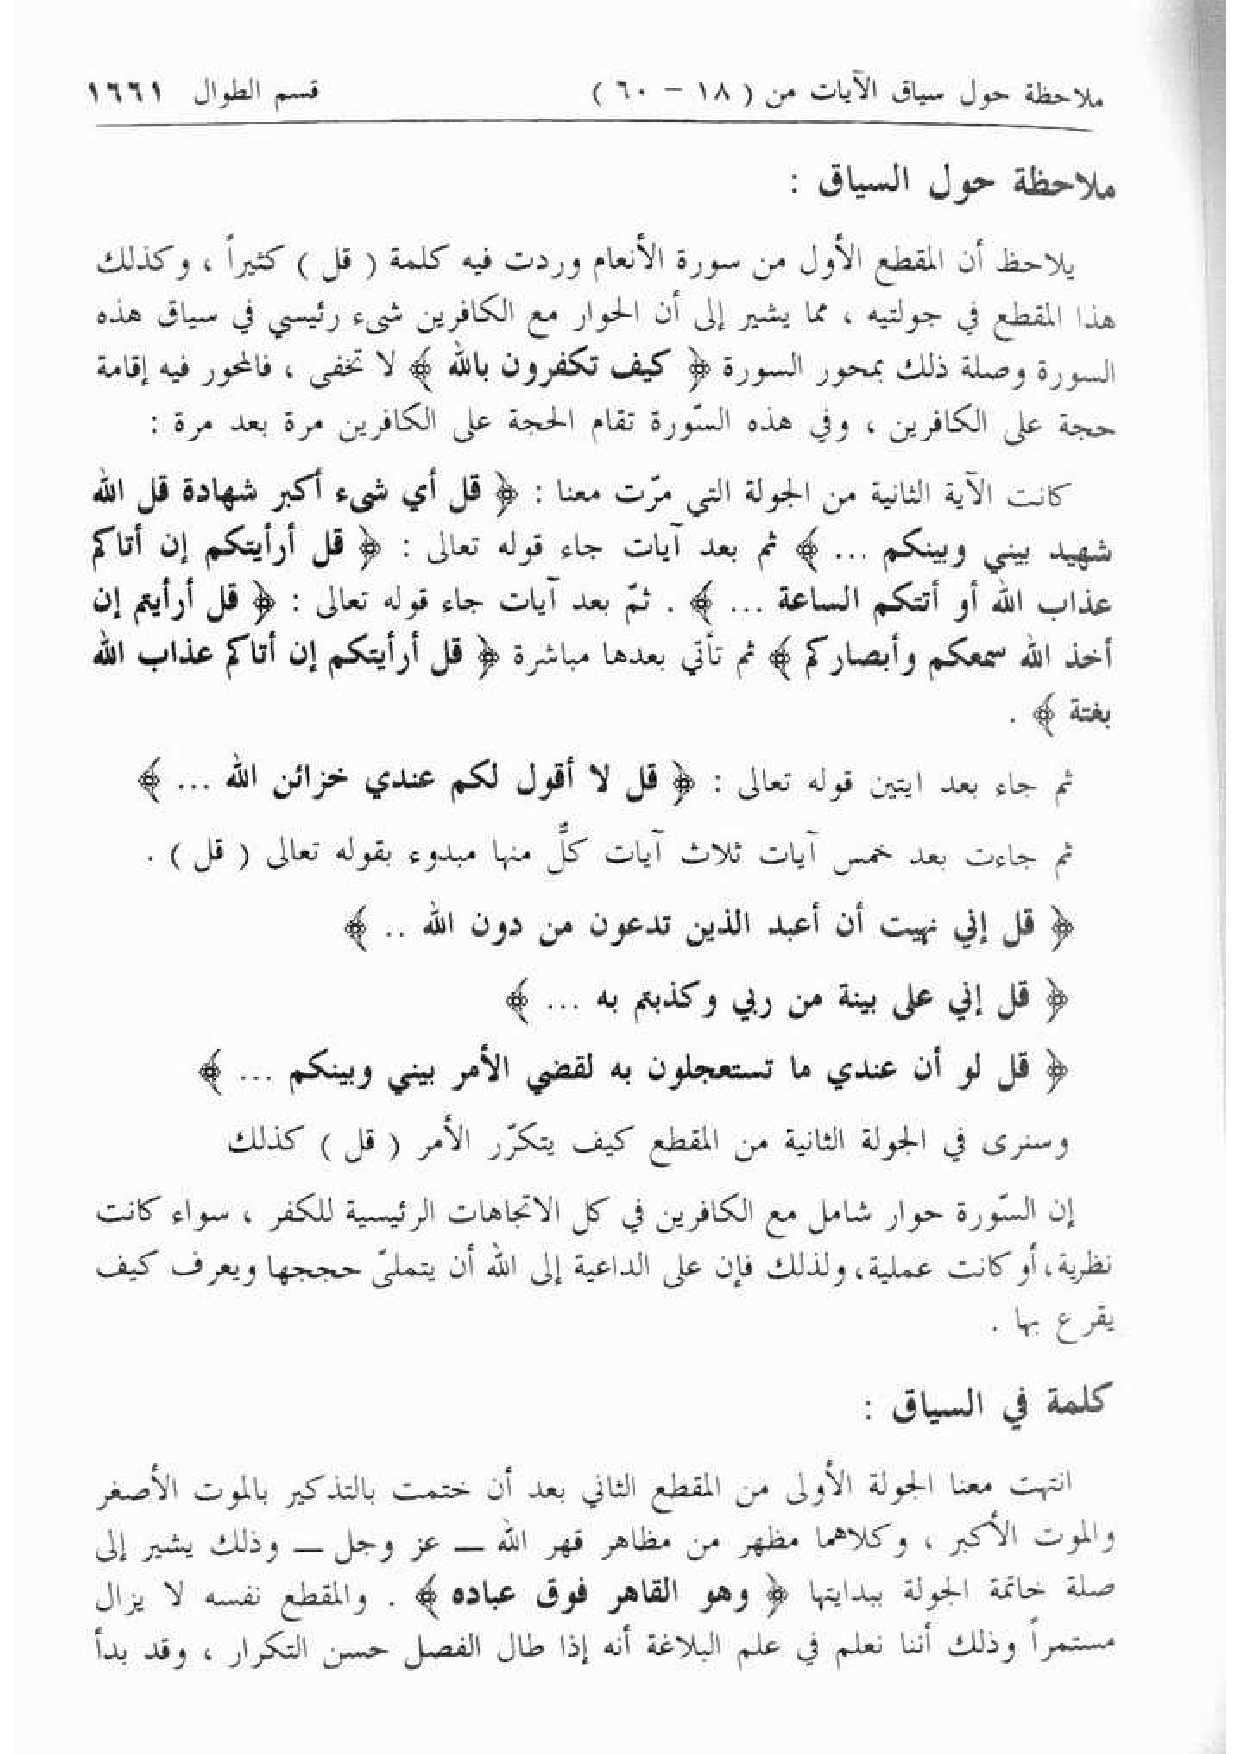 ملاحظة حول سياق الآيات من ( ١٨ – ٦٠ ) قسم الطوال ١٦٦١
ملاحظة حول السياق :
يلاحظ أن المقطع الأول من سورة الأنعام وردت فيه كلمة ( قل ) كثيراً ، وكذلك
هذا المقطع في جولتيه ، مما يشير إلى أن الحوار مع الكافرين شىء رئيسي في سياق هذه
السورة وصلة ذلك بمحور السورة ﴿ كيف تكفرون بالله ﴾ لا تخفى ، فالمحور فيه إقامة
حجة على الكافرين ، وفي هذه السّورة تقام الحجة على الكافرين مرة بعد مرة :
كانت الآية الثانية من الجولة التي مرّت معنا : ﴿ قل أي شىء أكبر شهادة قل الله
شهيد بيني وبينكم ... ﴾ ثم بعد آيات جاء قوله تعالى : ﴿ قل أرأيتكم إن أتاكم
عذاب الله أو أتتكم الساعة ... ﴾ . ثمّ بعد آيات جاء قوله تعالى : ﴿ قل أرأيتم إن
أخذ الله سمعكم وأبصاركم ﴾ ثم تأتي بعدها مباشرة ﴿ قل أرأيتكم إن أتاكم عذاب الله
بغتة ﴾ .
ثم جاء بعد ايتين قوله تعالى : ﴿ قل لا أقول لكم عندي خزائن الله ... ﴾
ثم جاءت بعد خمس آيات ثلاث آيات كلٌّ منها مبدوء بقوله تعالى ( قل ) .
﴿ قل إني نهيت أن أعبد الذين تدعون من دون الله .. ﴾
﴿ قل إني على بينة من ربي وكذبتم به ... ﴾
﴿ قل لو أن عندي ما تستعجلون به لقضي الأمر بيني وبينكم ... ﴾
وسنرى في الجولة الثانية من المقطع كيف يتكرّر الأمر ( قل ) كذلك
إن السّورة حوار شامل مع الكافرين في كل الاتجاهات الرئيسية للكفر ، سواء كانت
نظرية، أو كانت عملية، ولذلك فإن على الداعية إلى الله أن يتملىّ حججها ويعرف كيف
يقرع بها .
كلمة في السياق :
انتهت معنا الجولة الأولى من المقطع الثاني بعد أن ختمت بالتذكير بالموت الأصغر
والموت الأكبر ، وكلاهما مظهر من مظاهر قهر الله ــ عز وجل ــ وذلك يشير إلى
صلة خاتمة الجولة ببدايتها ﴿ وهو القاهر فوق عباده ﴾ . والمقطع نفسه لا يزال
مستمراً وذلك أننا نعلم في علم البلاغة أنه إذا طال الفصل حسن التكرار ، وقد بدأ